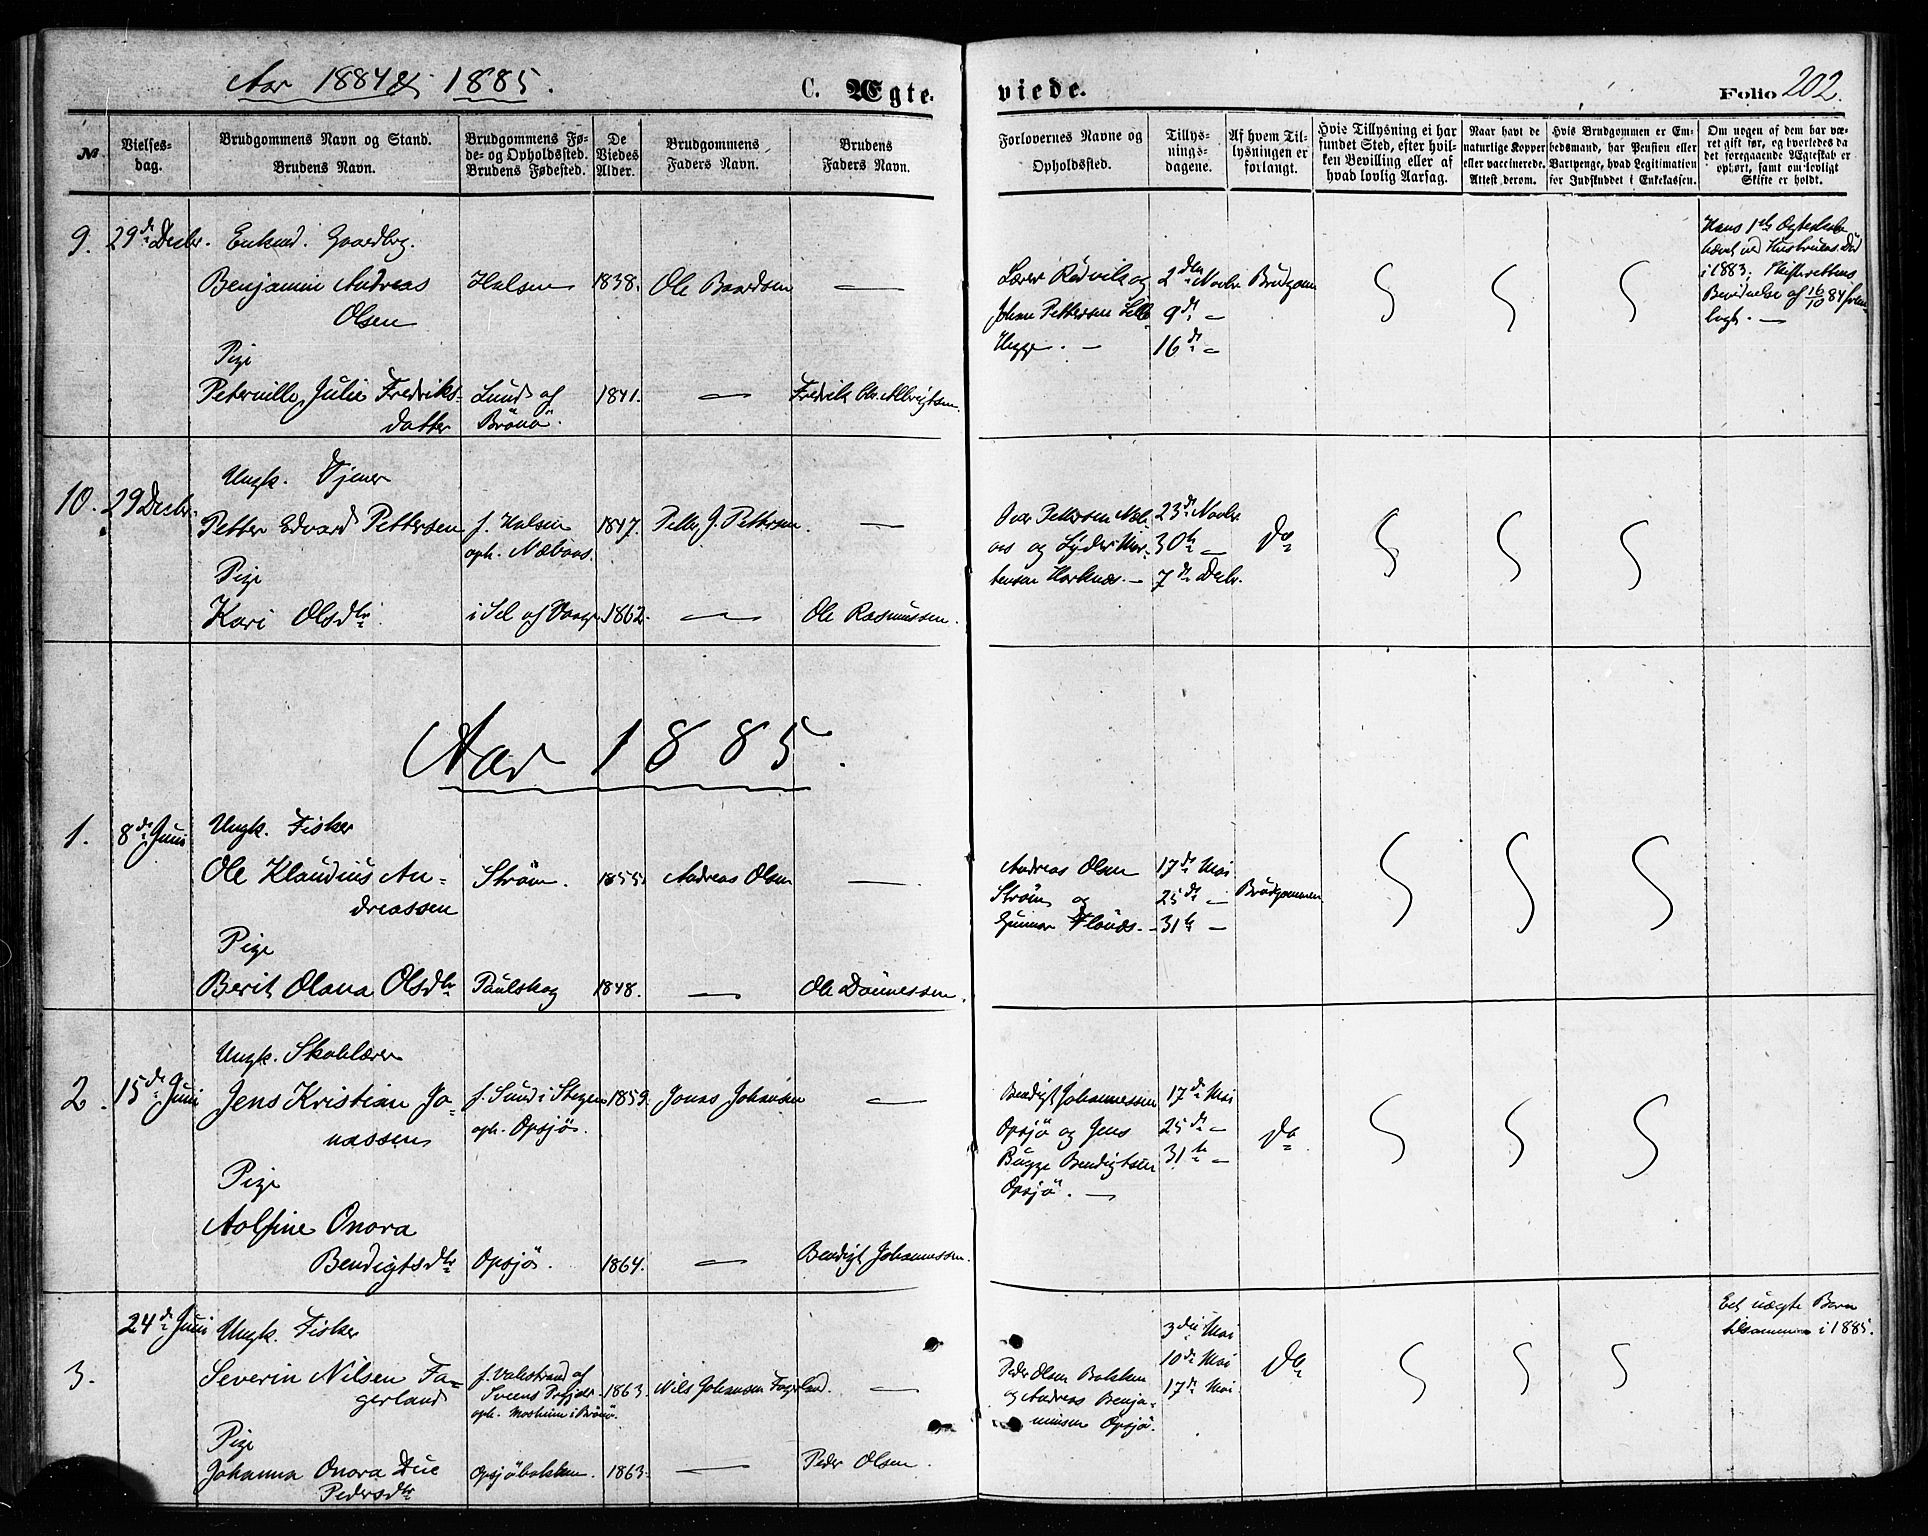 Aar 1884 & 1885.
C. Ægteviede.
Folio 202.
№
Vielsesdag.
Brudgommens Navn og Stand.
Brudens Navn.
Brudgommens Føde- og Opholdssted.
Brudens Fødested.
De Viedes Alder.
Brudgommens Faders Navn.
Brudens Faders Navn.
Forlovernes Navne og Opholdssted.
Tillysningsdagene.
Af hvem Tillysningen er forlangt.
Hvis Tillysning ei har fundet Sted, efter hvilken Bevilling eller af hvad lovlig Aarsag.
Naar havt de naturlige Kopper eller vaccinerede. Attest derom.
Hvis Brudgommen er Embedsmand, har Pension eller Vartpenge, hvad Legitimation for Indskuddet i Enkekassen.
Om nogen af dem har været gift før, og hvorledes da det foregaaende Ægteskab er ophørt, samt om lovligt Skifte er holdt.
9. 29de Decbr. Enkemd. Gaardbrg.
Benjamin Andreas Halsen 1838. Ole Baardsen —
Olsen
Pige
Peternille Julie Fredriks- Lund af 1841. — Fredrik Chr. Albrigtsen.
datter Brönö.
Lærer Rödvik og 2den Novbr Brudgom
Johan Pettersen Lille 9de —
Ugge. — 16de —
Hans 1ste Ægteskab
hævet ved Hustruens Död
i 1883; Skifterettens
Bevidnelse af 16/10 84 frem-
lagt. —
10. 29 Decbr. Ungk. Tjener
Petter Edvard Pettersen f. Halsen 1847. Petter J. Pettersen. —
oph. Næboas.
Pige
Kari Olsdtr. i Sel af Vaage 1862. — Ole Rasmussen.
Pettersen 23de Novbr. Do
og Lyder Mor- 30te —
tensen Horknæs. — 7de Decbr.
Aar 1885.
1. 8de Juni Ungk. Fisker
Ole Klaudius An- Ström. 1855. Andreas Olsen —
dreassen
Pige
Berit Olava Olsdtr Paulskog 1848. — Ole Dönnessen.
Andreas Olsen 17de Mai Brudgommen
Ström og 25de —
Gunnar Flönæs. — 31te —
2. 15de Juni Ungk. Skolelærer
Jens Kristian Jo- f. Sund i Stegen 1859. Jonas Johansen —
nassen oph. Opsjö.
Pige
Adolfine Onora
Bendigtsdtr Opsjö. 1864. — Bendigt Johannessen.
Bendigt Johannessen 17de Mai
Opsjö og Jens 25de — Do
Bugge Bendigtsen 31te —
Opsjö. —
3. 24de Juni Ungk. Fisker
Severin Nilsen Fa- f. Valstrand af 1863. Nils Johansen Fagerland. —
gerland
oph. Mosheim i Brönö.
Pige
Johanna Onora Due Opsjöbakken. 1863. — Peder Olsen.
Pedersdtr
3die Mai
Peder Olsen Bakken 10de Mai Do
og Andreas Benja- 17de Mai
minsen Opsjö.
Et uægte Barn
tilsammen i 1885.